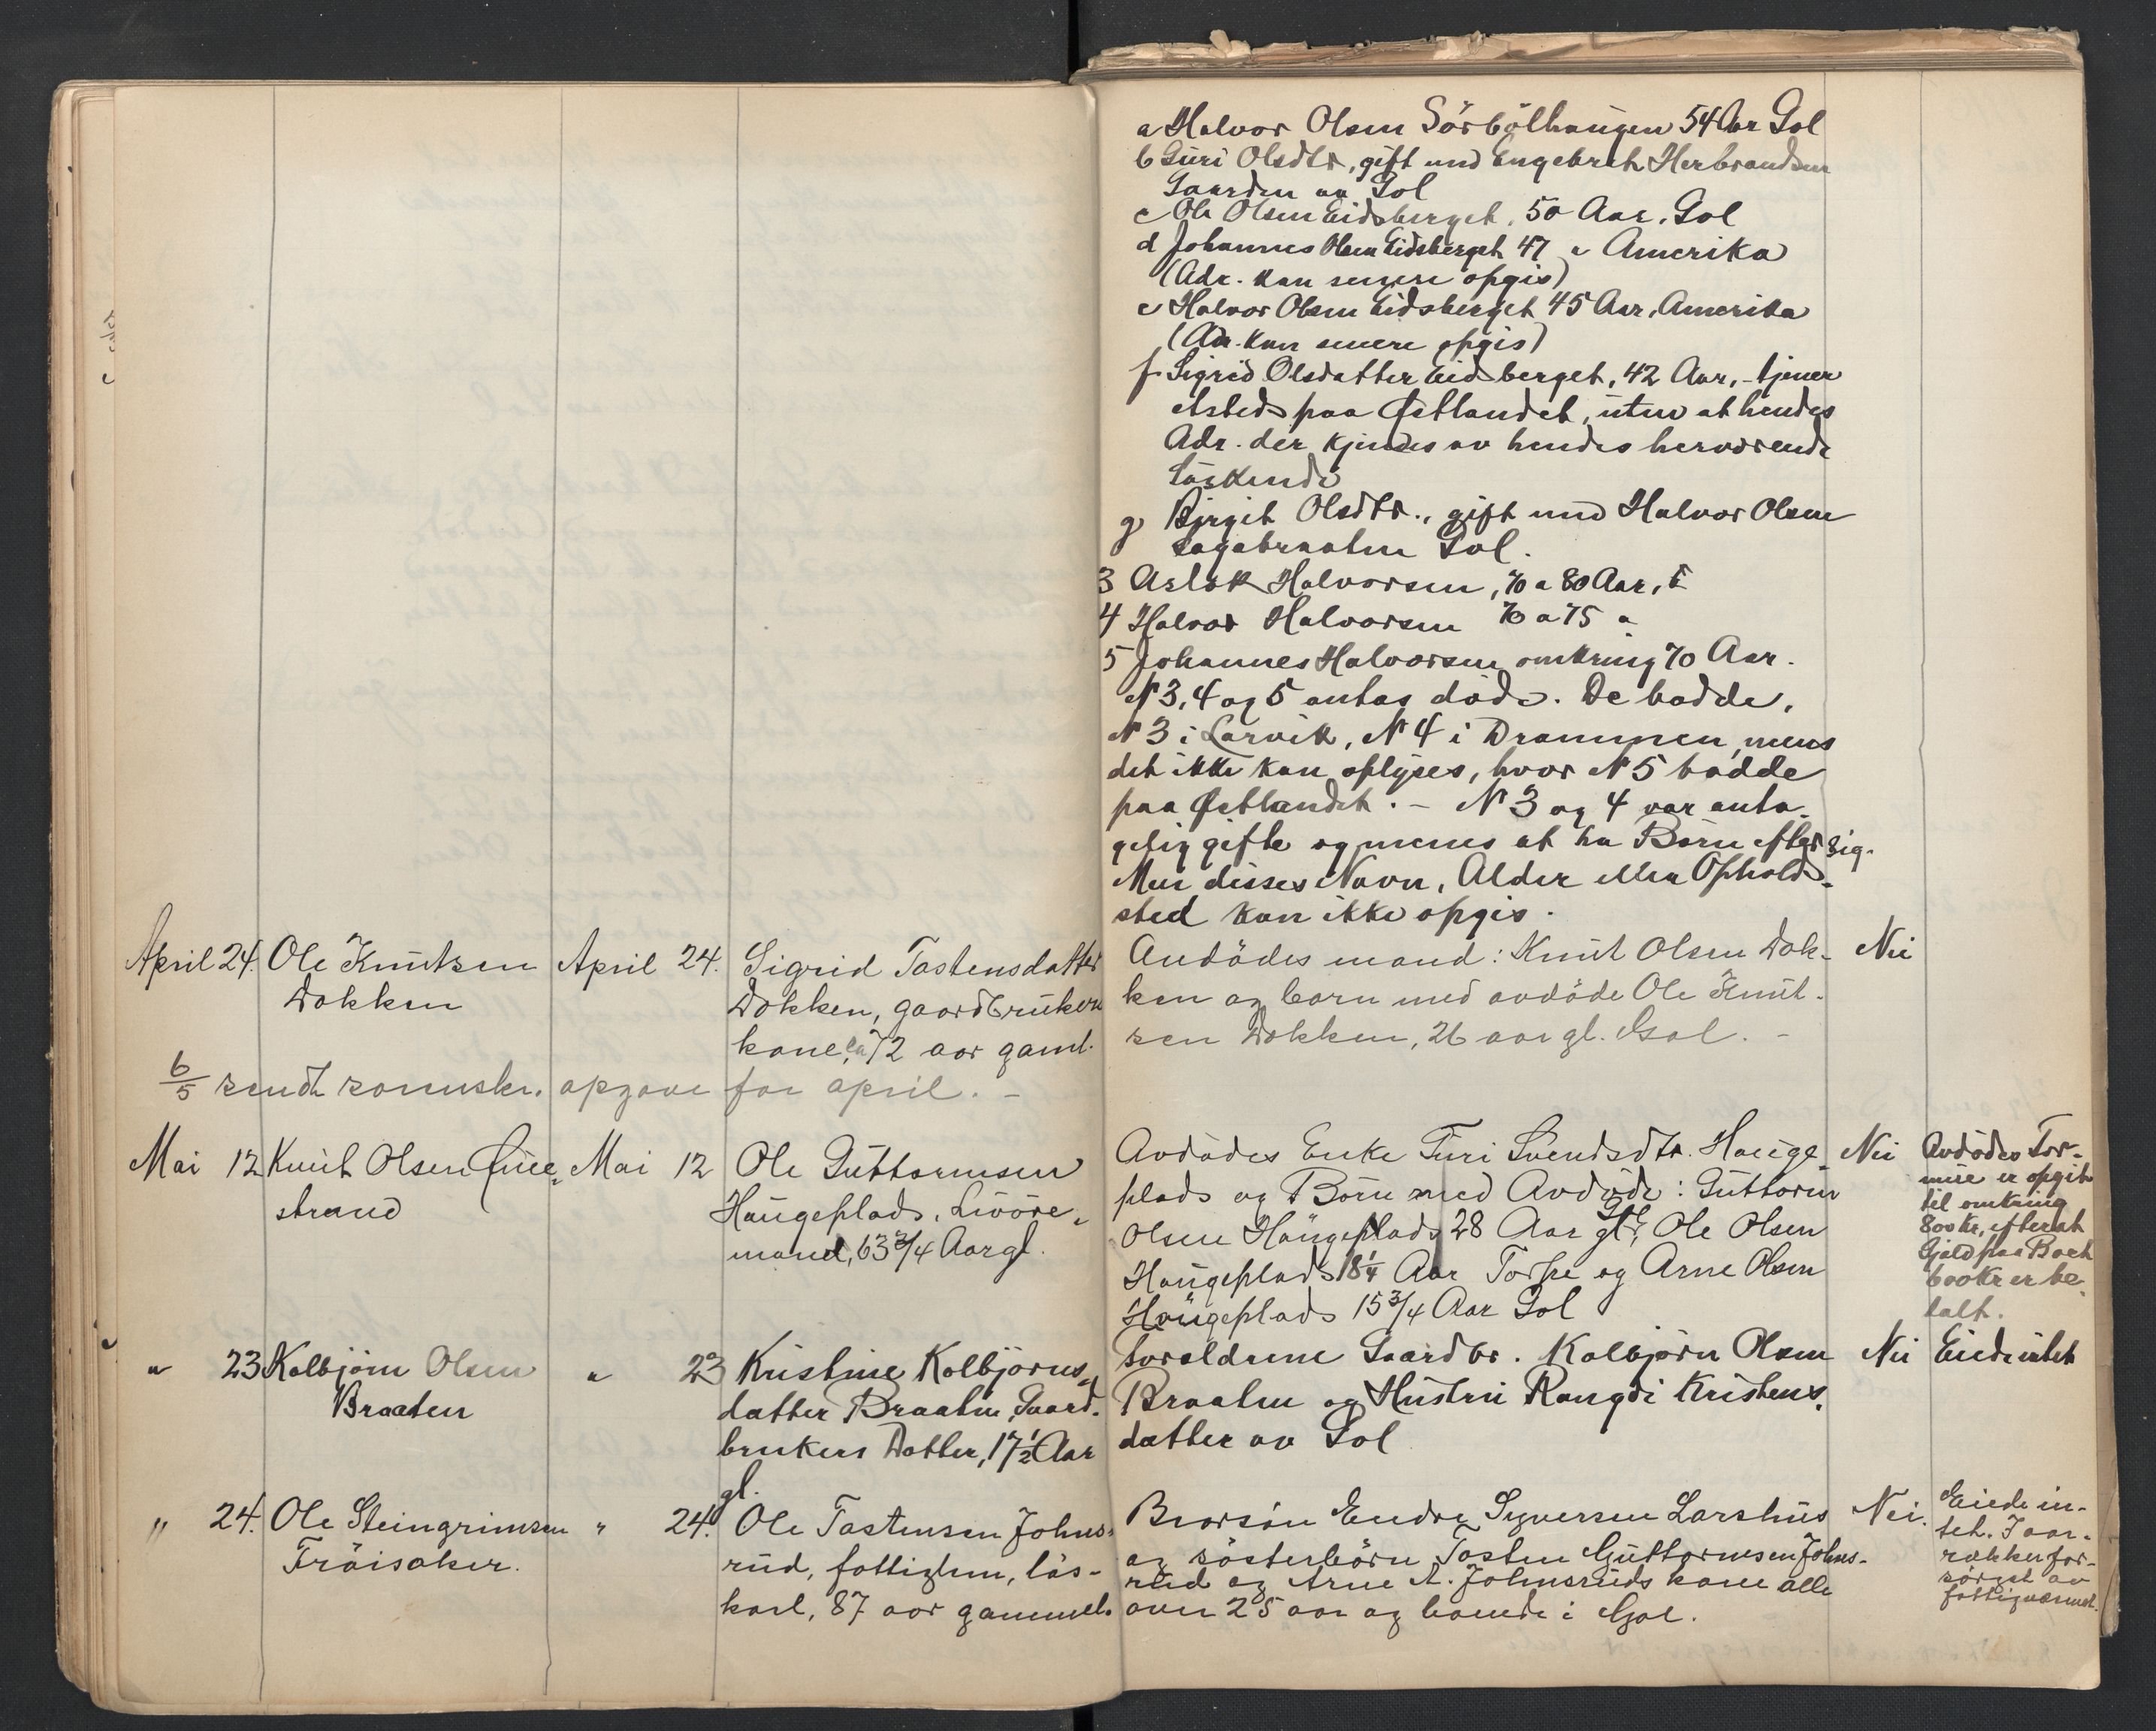 a Halvor Olsen Sörbölhaugen 54 Aar Gol
b Guri Olsdtr, gift med Engebret Herbrandsen
Gaarden av Gol
c Ole Olsen Eidsberget, 50 Aar, Gol
d Johannes Olsen Eidsberget 47 " Amerika
(Adr. kan senere opgis)
e Halvor Olsen Eidsberget 45 Aar, Amerika
(Adr. kan senere opgis)
f Sigrid Olsdatter Eidsberget, 42 Aar, - tjener
etsteds paa Østlandet, uten at hendes
Adr. der kjendes av hendes herværende
Söskende
g Birgit Olsdtr., gift med Halvor Olsen
Sagabraaten Gol.
3 Aslak Halvorsen, 70 a 80 Aar,
4 Halvor Halvorsen 70 a 75 "
5 Johannes Halvorsen omkring 70 Aar.
N 3, 4 og 5 antas döde. De bodde,
N 3 i Larvik, N 4 i Drammen, mens
det ikke kan oplyses, hvor N 5 bodde
paa Østlandet. - N 3 og 4 var anta-
gelig gifte og menes at ha Börn efter sig.
Men disses Navn, Alder eller Ophold-
sted kan ikke opgis.
April 24. Ole Knutsen Dokken April 24. Sigrid Tostensdatter
Dokken, gaardbruker
kone, ca 72 aar gaml.
Avdödes mand: Knut Olsen Dok-
ken og barn med avdöde Ole Knut-
sen Dokken, 26 aar gl. Gol. -
Nei
6/5 sendt sorenskr. opgave for april. -
Mai 12 Knut Olsen
strand
Mai 12 Ole Guttormsen
Haugeplads,
mand, 63 3/4 Aar gl.
Avdödes Enke Turi Svendsdtr. Hauge-
plads og Börn med Avdöde: Guttorm
Olsen Haugeplads 28 Aar gl., Ole Olsen
Haugeplads 18 1/4 Aar Torpe og Arne Olsen
Haugeplads 15 3/4 Aar Gol
Nei
Avdödes For-
mue er opgit
til omkring
800 kr, efterat
Gjeld paa
600 kr er be-
talt.
" 23 Kolbjörn Olsen
Braaten
" 23 Kristine Kolbjörns-
datter Braaten, Gaard-
brukers Datter, 17 1/2 Aar
gl.
Foreldrene Gaardbr. Kolbjörn Olsen
Braaten og Hustru Rangdi Kristens-
datter av Gol
Nei
Eiede intet
" 24. Ole Steingrimsen
Fröisaker.
" 24. Ole Tostensen Johns-
rud, fattiglem, lös-
karl, 87 aar gammel.
Brorsön Endre Syversen Larshus
og sösterbörn Tosten Guttormsen Johns-
rud og Arne A. Johnsruds kone alle
over 25 aar og boende i Gol.
Nei.
Eiede in-
tet. I aar-
rækker for-
sörget av
fattigvæsenet.